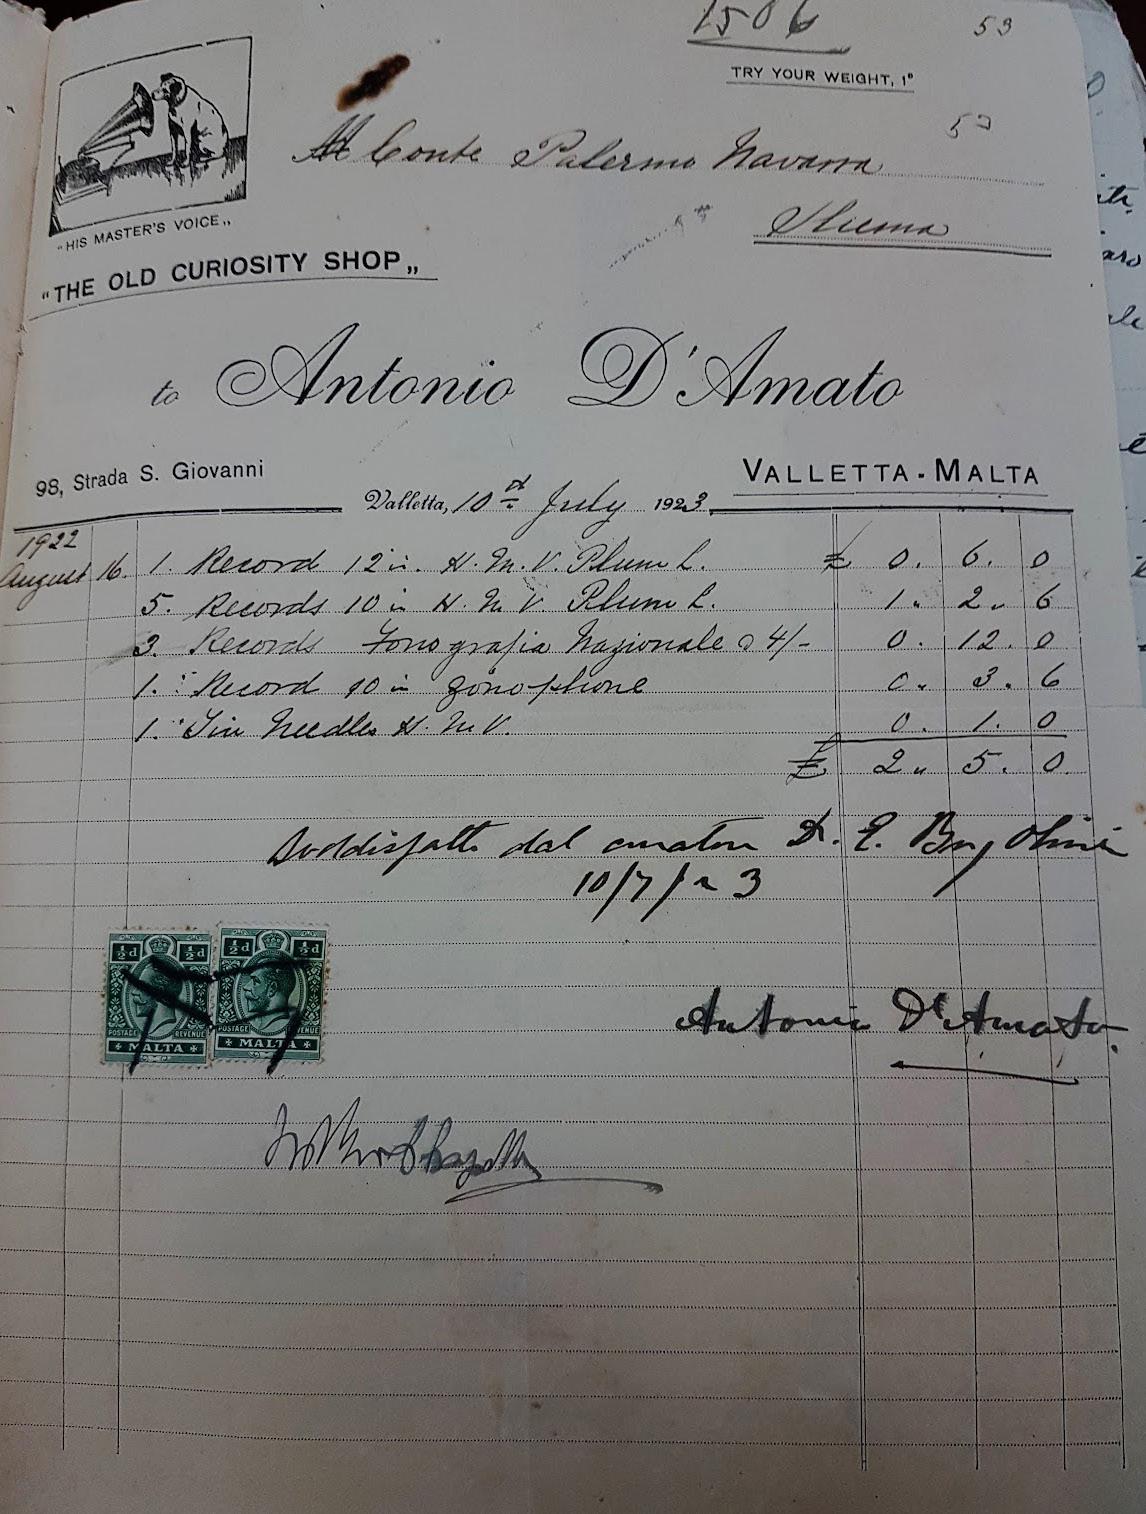 1506
53
TRY YOUR WEIGHT, 1ᴰ
53
Al Conte Palermo Navarra
Sliema
"HIS MASTER'S VOICE„
"THE OLD CURIOSITY SHOP„
to Antonio D'Amato
98, Strada S. Giovanni
VALLETTA - MALTA
Valletta, 10th July 1923
1922
August 16. 1. Record 12 in. H. M. V. Plum L. £ 0. 6. 0
5. Records 10 in H. M. V. Plum L. 1. 2. 6
3. Records Fonografia Nazionale @ 4/- 0. 12. 0
1. Record 10 in Zonophone 0. 3. 6
1. Tin Needles H. M. V. 0. 1. 0
£ 2. 5. 0.
Soddisfatto dal curatore Dr. E.
10/7/23
½d ½d ½d ½d
POSTAGE REVENUE POSTAGE REVENUE
MALTA MALTA
Antonio D'Amato.